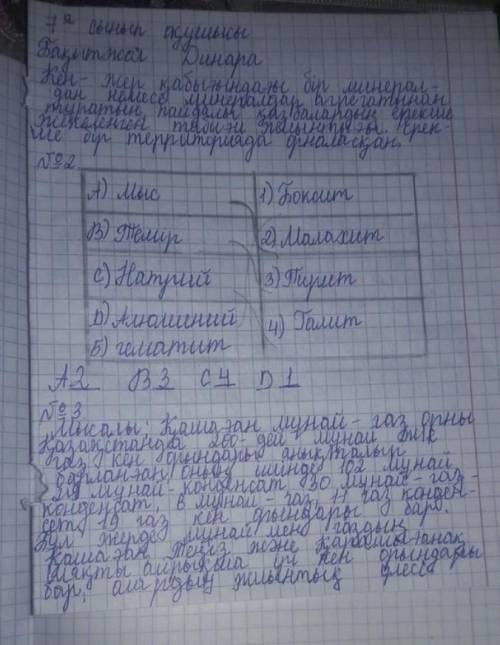 7 "а" сынып оқушысы
Бақытжол Динара
Кен - жер қабығындағы бір минерал-
дан немесе минералдар агрегатынан
тұратын пайдалы қазбалардың ерекше
жекеленген табиғи жиынтығы. Ерек-
ше бір территорияда орналасқан.
№2
А) Мыс 1) Боксит
В) Темир 2) Малахит
С) Натрий 3) Пирит
D) Алюминий 4) Галит
5) гематит
А2 В3 С4 D1
№3
Мысалы: Қашаған мұнай - газ орны
Қазақстанда 260-дей мұнай
газ кен орындары анықталып
барланған, оның ішінде 102 мұнай
29 мұнай-конденсат 30 мұнай-газ-
конденсат, 6 мұнай-газ, 11 газ конден-
сат, 19 газ кен орындары бар.
Бұл жерде мұнай мен газдың
Қашаған, Теңіз және Қарашығанақ
сияқты айрықша ірі кен орындары
бар, олардың жиынтық үлесі